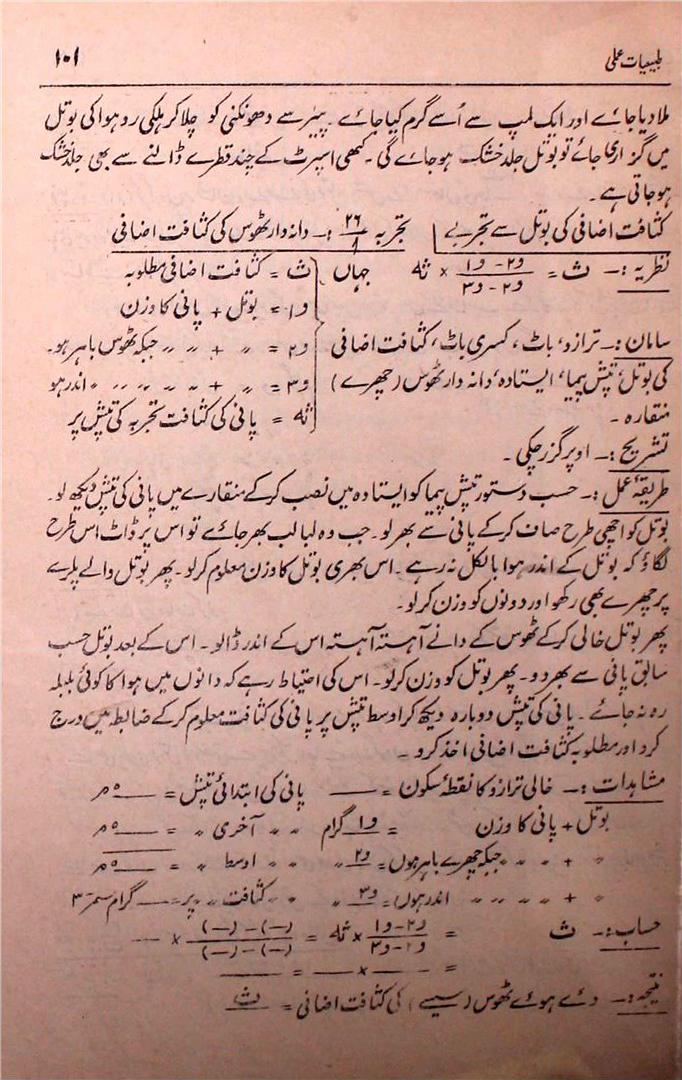 ۱۰۱
طبیعیات عملی
ملادیا جائے اور ایک لمپ سے اُسے گرم کیا جائے۔ پیر سے دھونکنی کو چلا کر ہلکی رو ہوا کی بوتل
میں گزاری جائے تو بوتل جلد خشک ہو جائے گی۔ کبھی اسپرٹ کے چند قطرے ڈالنے سے بھی جلد خشک
ہو جاتی ہے۔
کثافت اضافی کی بوتل سے تجربے
تجربہ ۲۶/۸ :۔ دانہ دار ٹھوس کی کثافت اضافی
نظریہ :۔ ث = (و۲ - و۱)/(و۲ - و۳) × ثہ جہاں
ث = کثافت اضافی مطلوبہ
و۱ = بوتل + پانی کا وزن
و۲ = 〃 + 〃 〃 جبکہ ٹھوس باہر ہو۔
و۳ = 〃 + 〃 〃 〃 〃 اندر ہو
ثہ = پانی کی کثافت تجربہ کی تپش پر
سامان :۔ ترازو، باٹ، کسری باٹ، کثافت اضافی
کی بوتل، تپش پیما، ایستادہ، دانہ دار ٹھوس (چھرے)
منقارہ۔
تشریح :۔ اوپر گزر چکی۔
طریقۂ عمل :۔ حسب دستور تپش پیما کو ایستادہ میں نصب کر کے منقارے میں پانی کی تپش دیکھ لو۔
بوتل کو اچھی طرح صاف کر کے پانی سے بھر لو۔ جب وہ لبالب بھر جائے تو اس پر ڈاٹ اس طرح
لگاؤ کہ بوتل کے اندر ہوا بالکل نہ رہے۔ اس بھری بوتل کا وزن معلوم کر لو۔ پھر بوتل والے پلڑے
پر چھرے بھی رکھو اور دونوں کو وزن کر لو۔
پھر بوتل خالی کر کے ٹھوس کے دانے آہستہ آہستہ اس کے اندر ڈالو۔ اس کے بعد بوتل حسب
سابق پانی سے بھر دو۔ پھر بوتل کو وزن کر لو۔ اس کی احتیاط رہے کہ دانوں میں ہوا کا کوئی بلبلہ
رہ نہ جائے۔ پانی کی تپش دوبارہ دیکھ کر اوسط تپش پر پانی کی کثافت معلوم کر کے ضابطہ میں درج
کرو اور مطلوبہ کثافت اضافی اخذ کرو۔
مشاہدات :۔ خالی ترازو کا نقطۂ سکون = ___ پانی کی ابتدائی تپش = ___ °م
بوتل + پانی کا وزن = و۱ گرام 〃 〃 آخری 〃 = ___ °م
〃 + 〃 〃 〃 جبکہ چھرے باہر ہوں = و۲ 〃 〃 〃 اوسط 〃 = ___ °م
〃 + 〃 〃 〃 〃 اندر ہوں = و۳ 〃 〃 〃 کثافت 〃 پر = ___ گرام سمر-۳
حساب :۔ ث = (و۲ - و۱)/(و۲ - و۳) × ثہ = ((—) - (—))/((—) - (—)) × —
= — × — = —
نتیجہ :۔ دئے ہوئے ٹھوس (سیسے) کی کثافت اضافی = ث